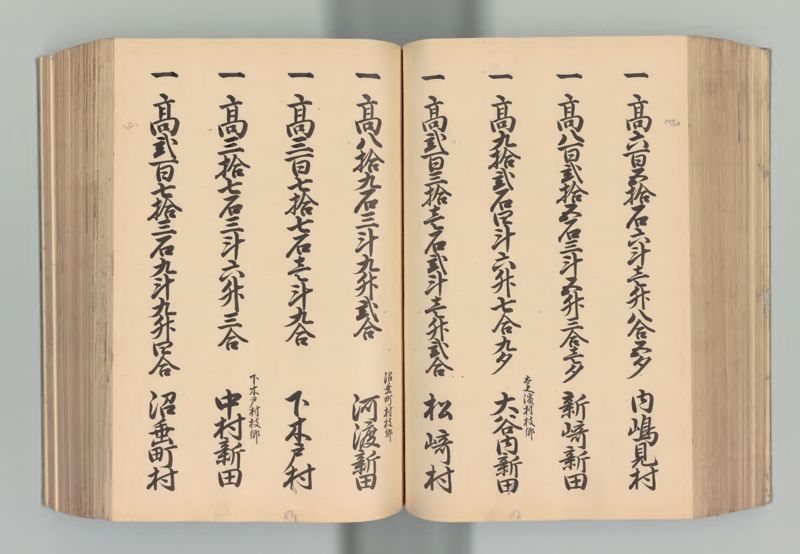 一 髙六百五拾石六斗壱升八合五夕 内嶋見村
一 髙八百弐拾五石三斗五升三合壱夕 新崎新田
一 髙九拾弐石四斗六升七合九夕 大谷内新田
太夫濱村枝郷
一 髙弐百三拾壱石弐斗壱升弐合 松崎村
一 髙八拾九石三斗九升弐合 河渡新田
沼垂町村枝郷
一 髙三百七拾七石壱斗九合 下木戸村
一 髙三拾七石三斗六升三合 中村新田
下木戸村枝郷
一 髙弐百七拾三石九斗九升四合 沼垂町村